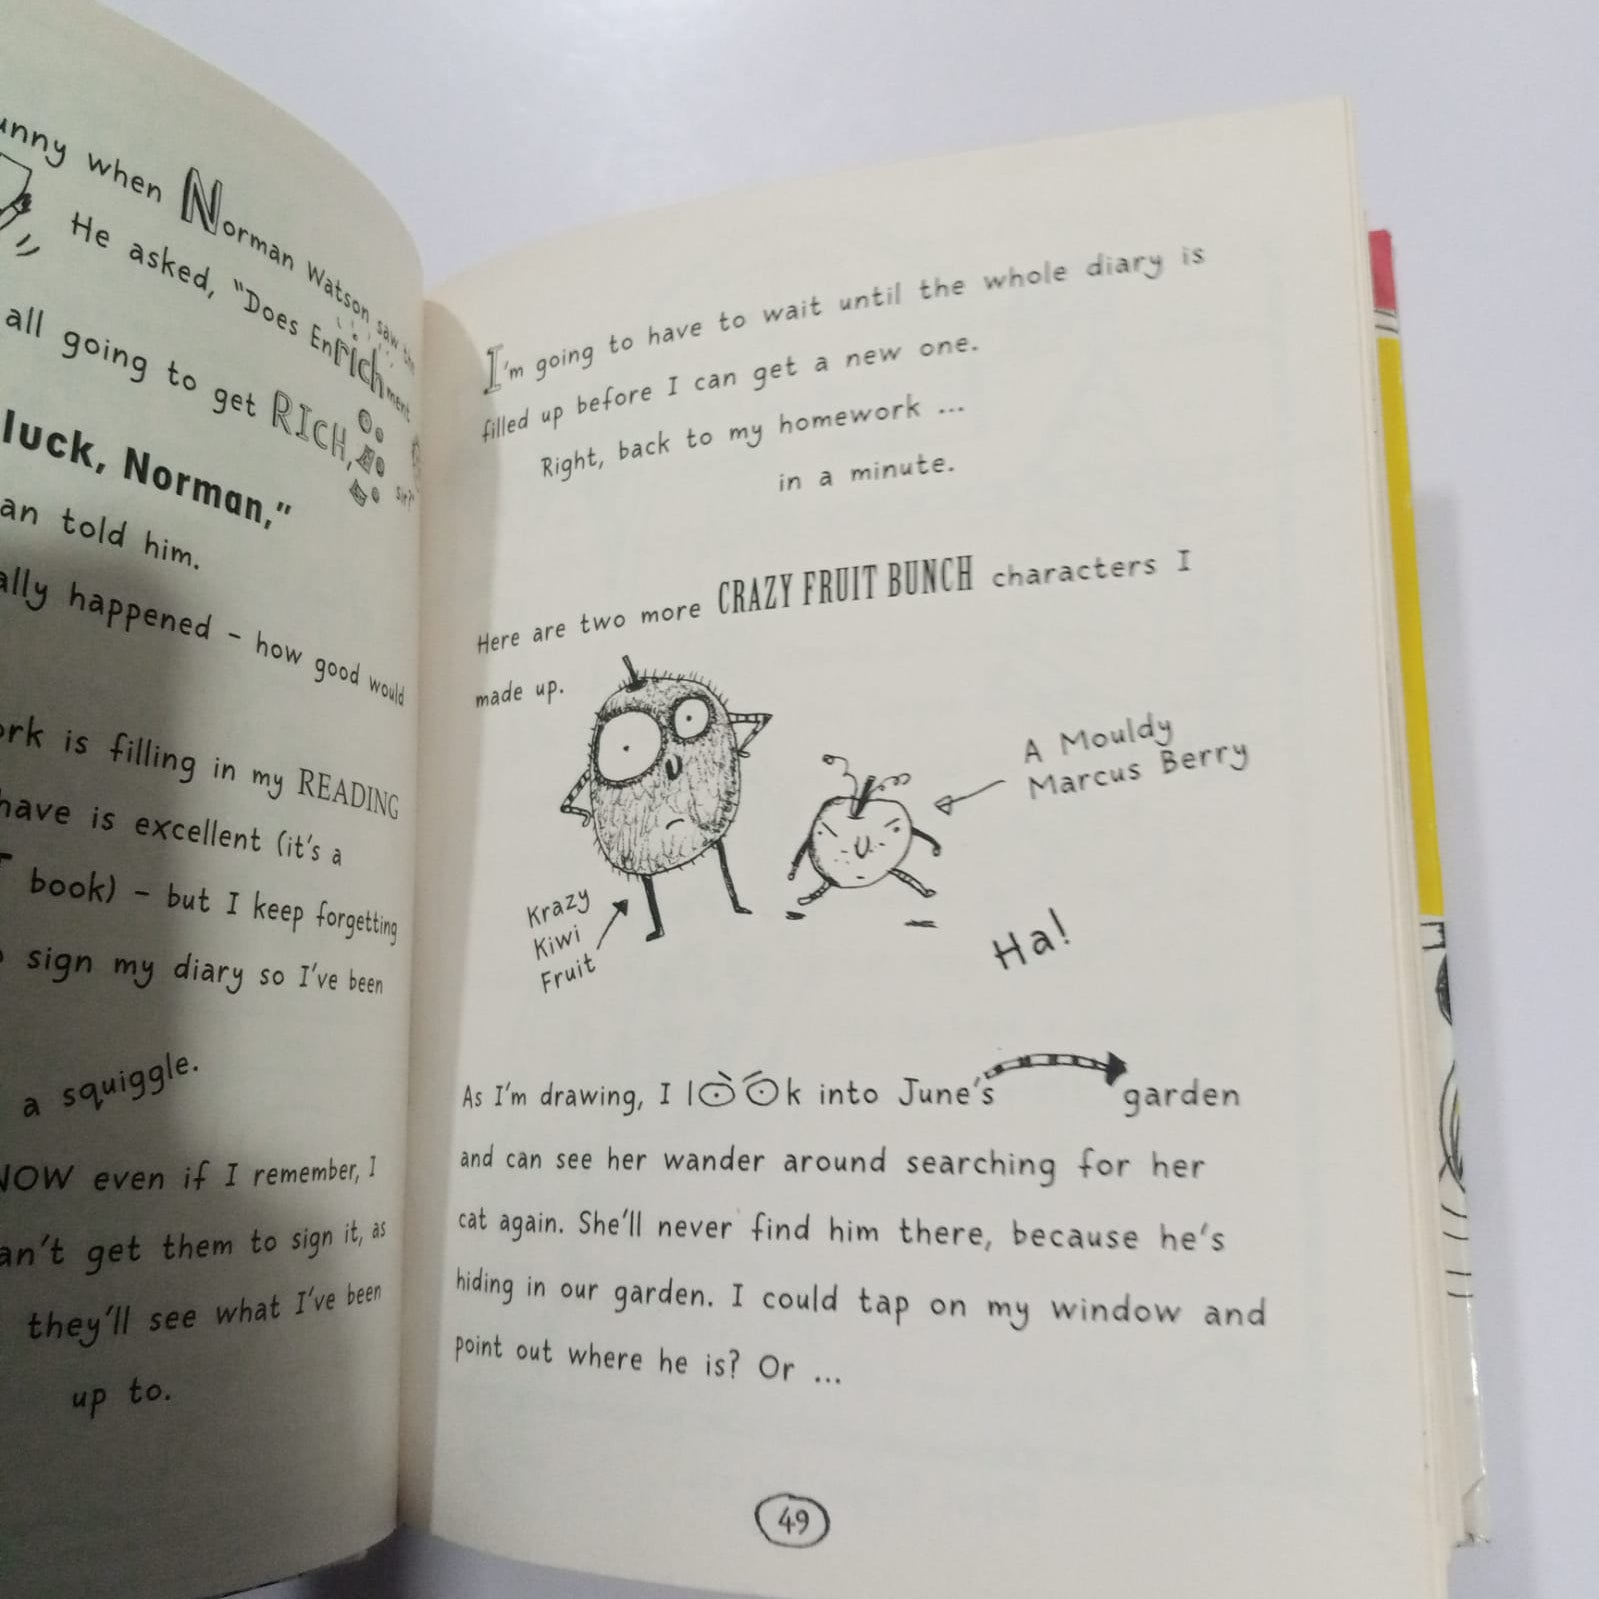 unny when Norman Watson saw the
He asked, "Does Enrichment
all going to get RICH, Sir?"
luck, Norman,"
an told him.
ally happened - how good would
ork is filling in my READING
have is excellent (it's a
book) - but I keep forgetting
sign my diary so I've been
a squiggle.
NOW even if I remember, I
an't get them to sign it, as
they'll see what I've been
up to.
I'm going to have to wait until the whole diary is
filled up before I can get a new one.
Right, back to my homework ...
in a minute.
Here are two more CRAZY FRUIT BUNCH characters I
made up.
A Mouldy
Marcus Berry
Krazy
Kiwi
Fruit
Ha!
As I'm drawing, I look into June's garden
and can see her wander around searching for her
cat again. She'll never find him there, because he's
hiding in our garden. I could tap on my window and
point out where he is? Or ...
49